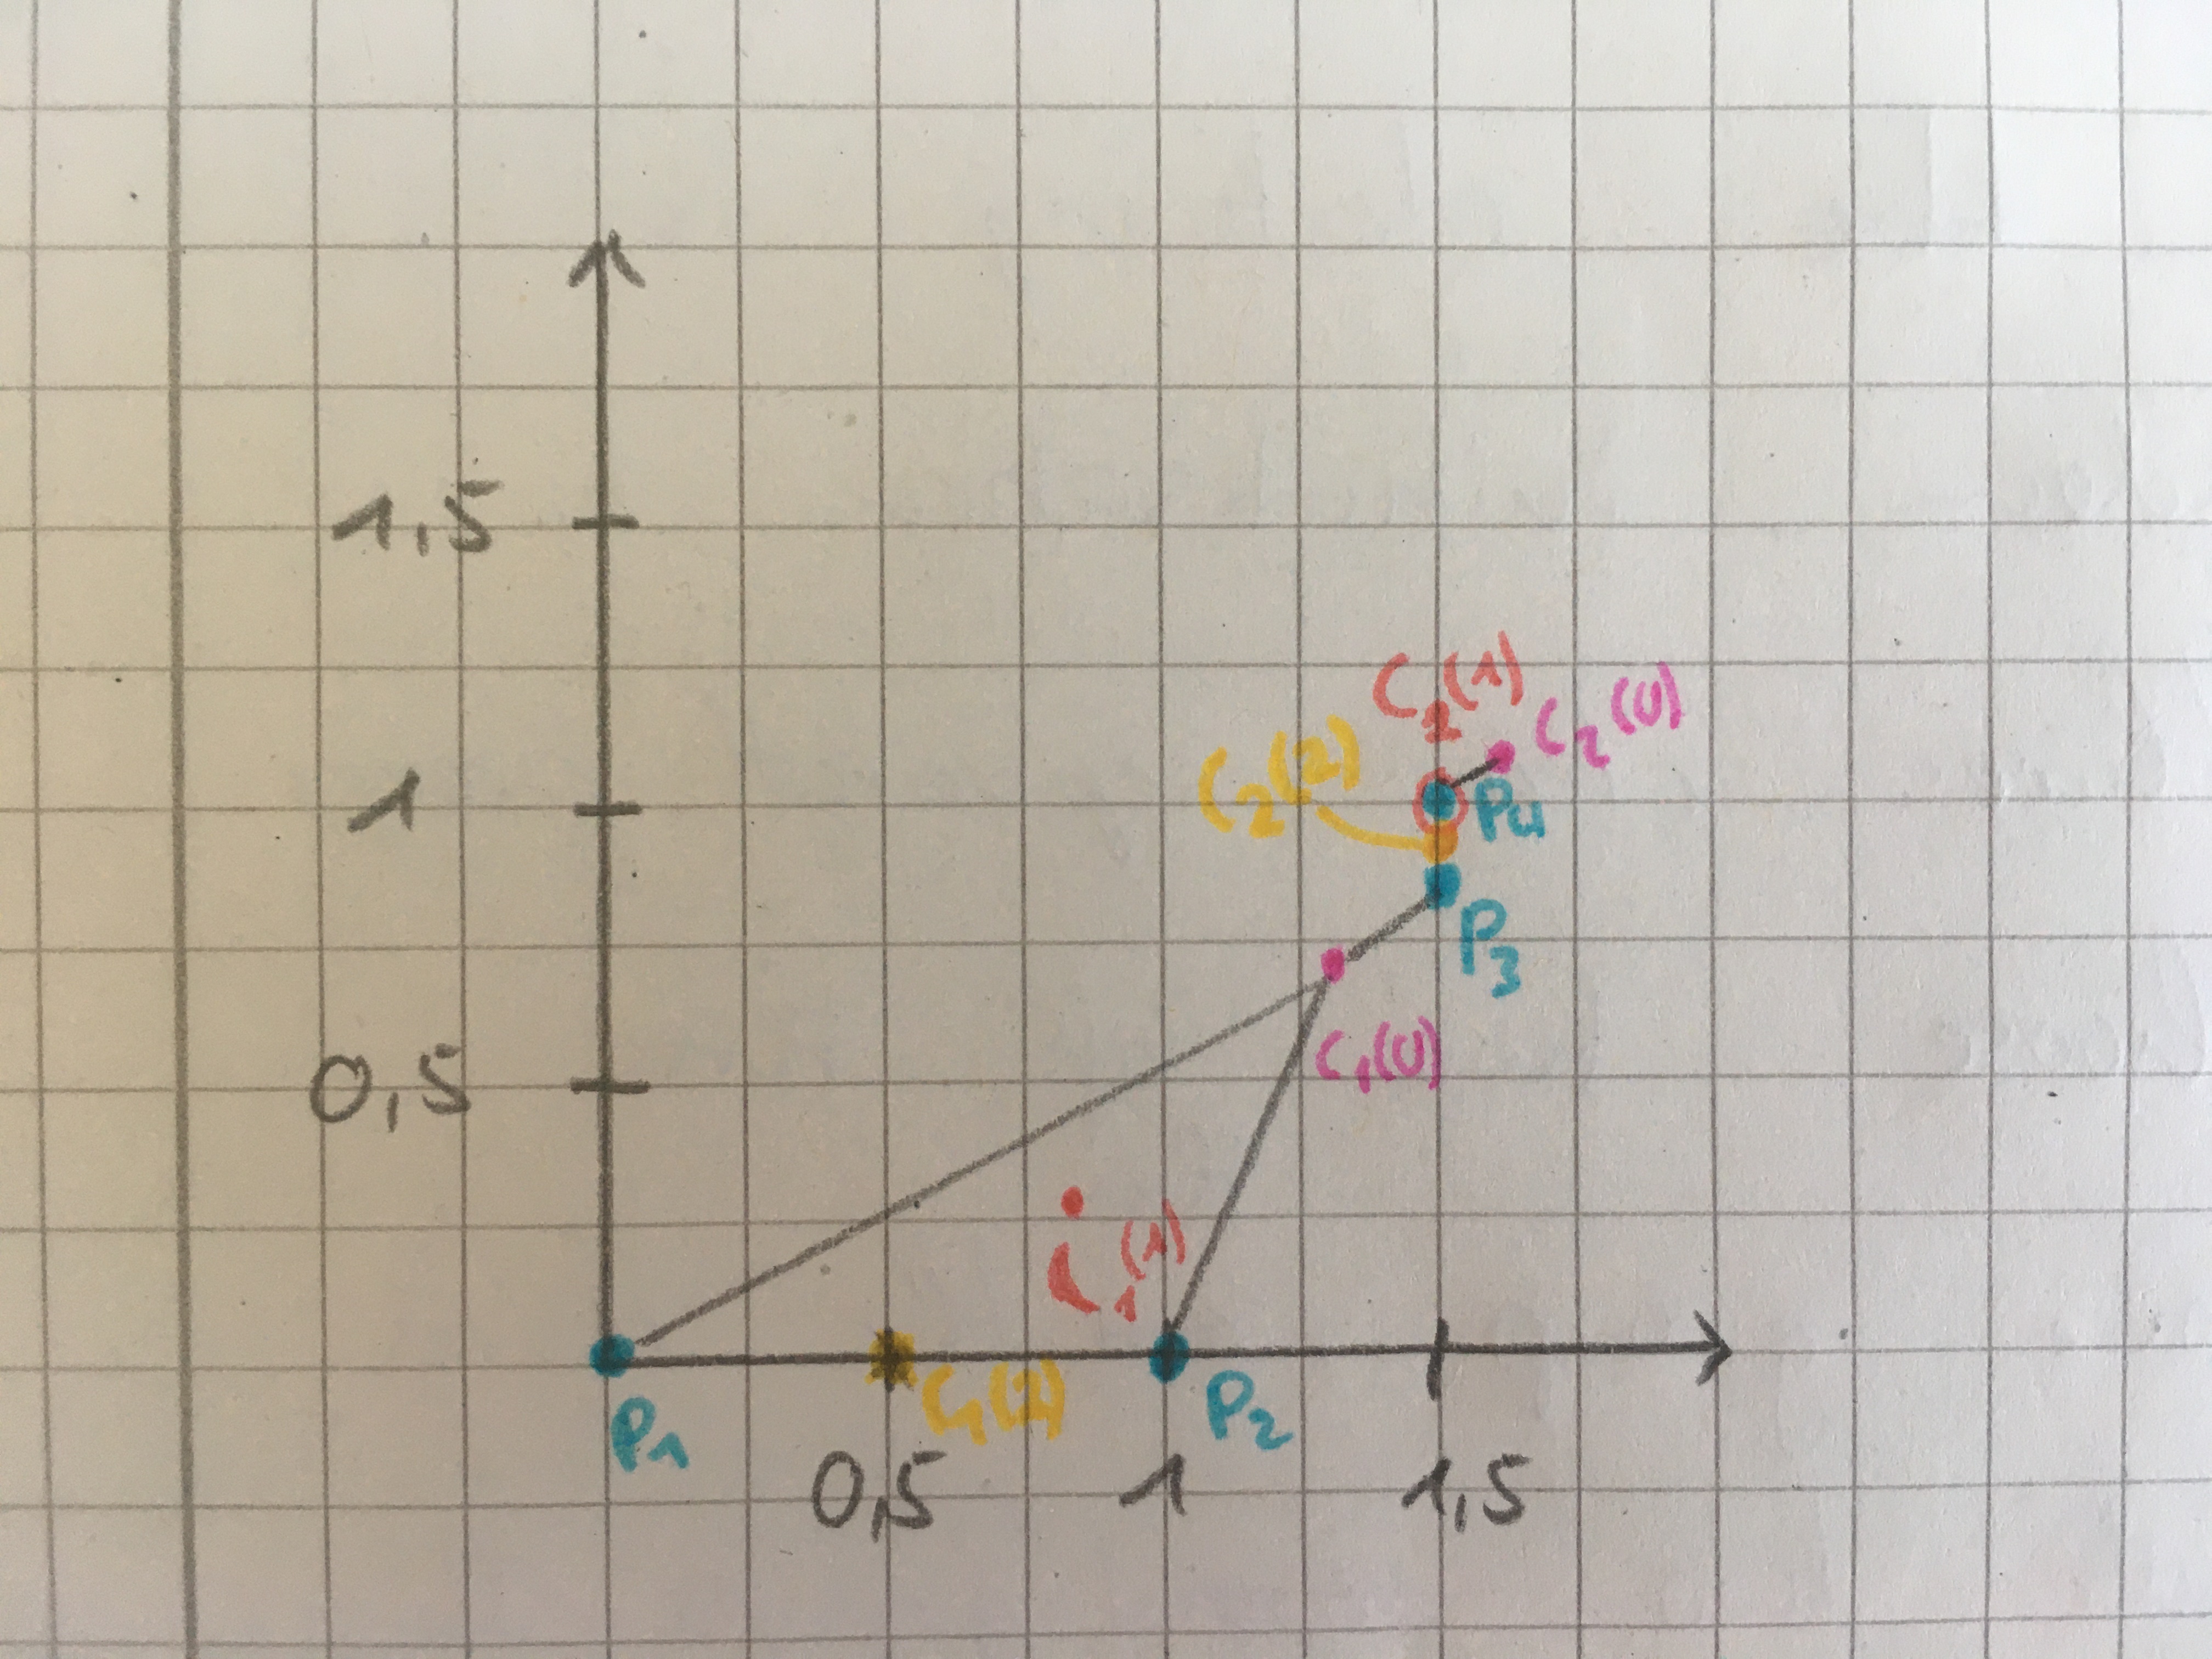 1,5
C₂(1)
C₂(0)
C₂(2)
1
P4
P3
0,5
C₁(0)
C₁(1)
P1
C₁(2)
P2
0,5
1
1,5